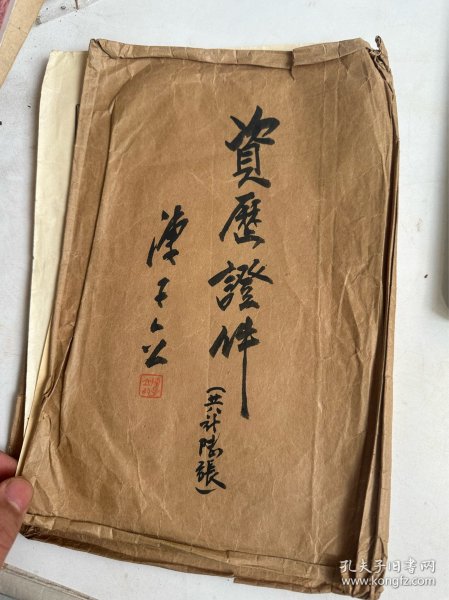 資歷證件
(共計陸張)
陳子
孔夫子旧书网
www.kongfz.com